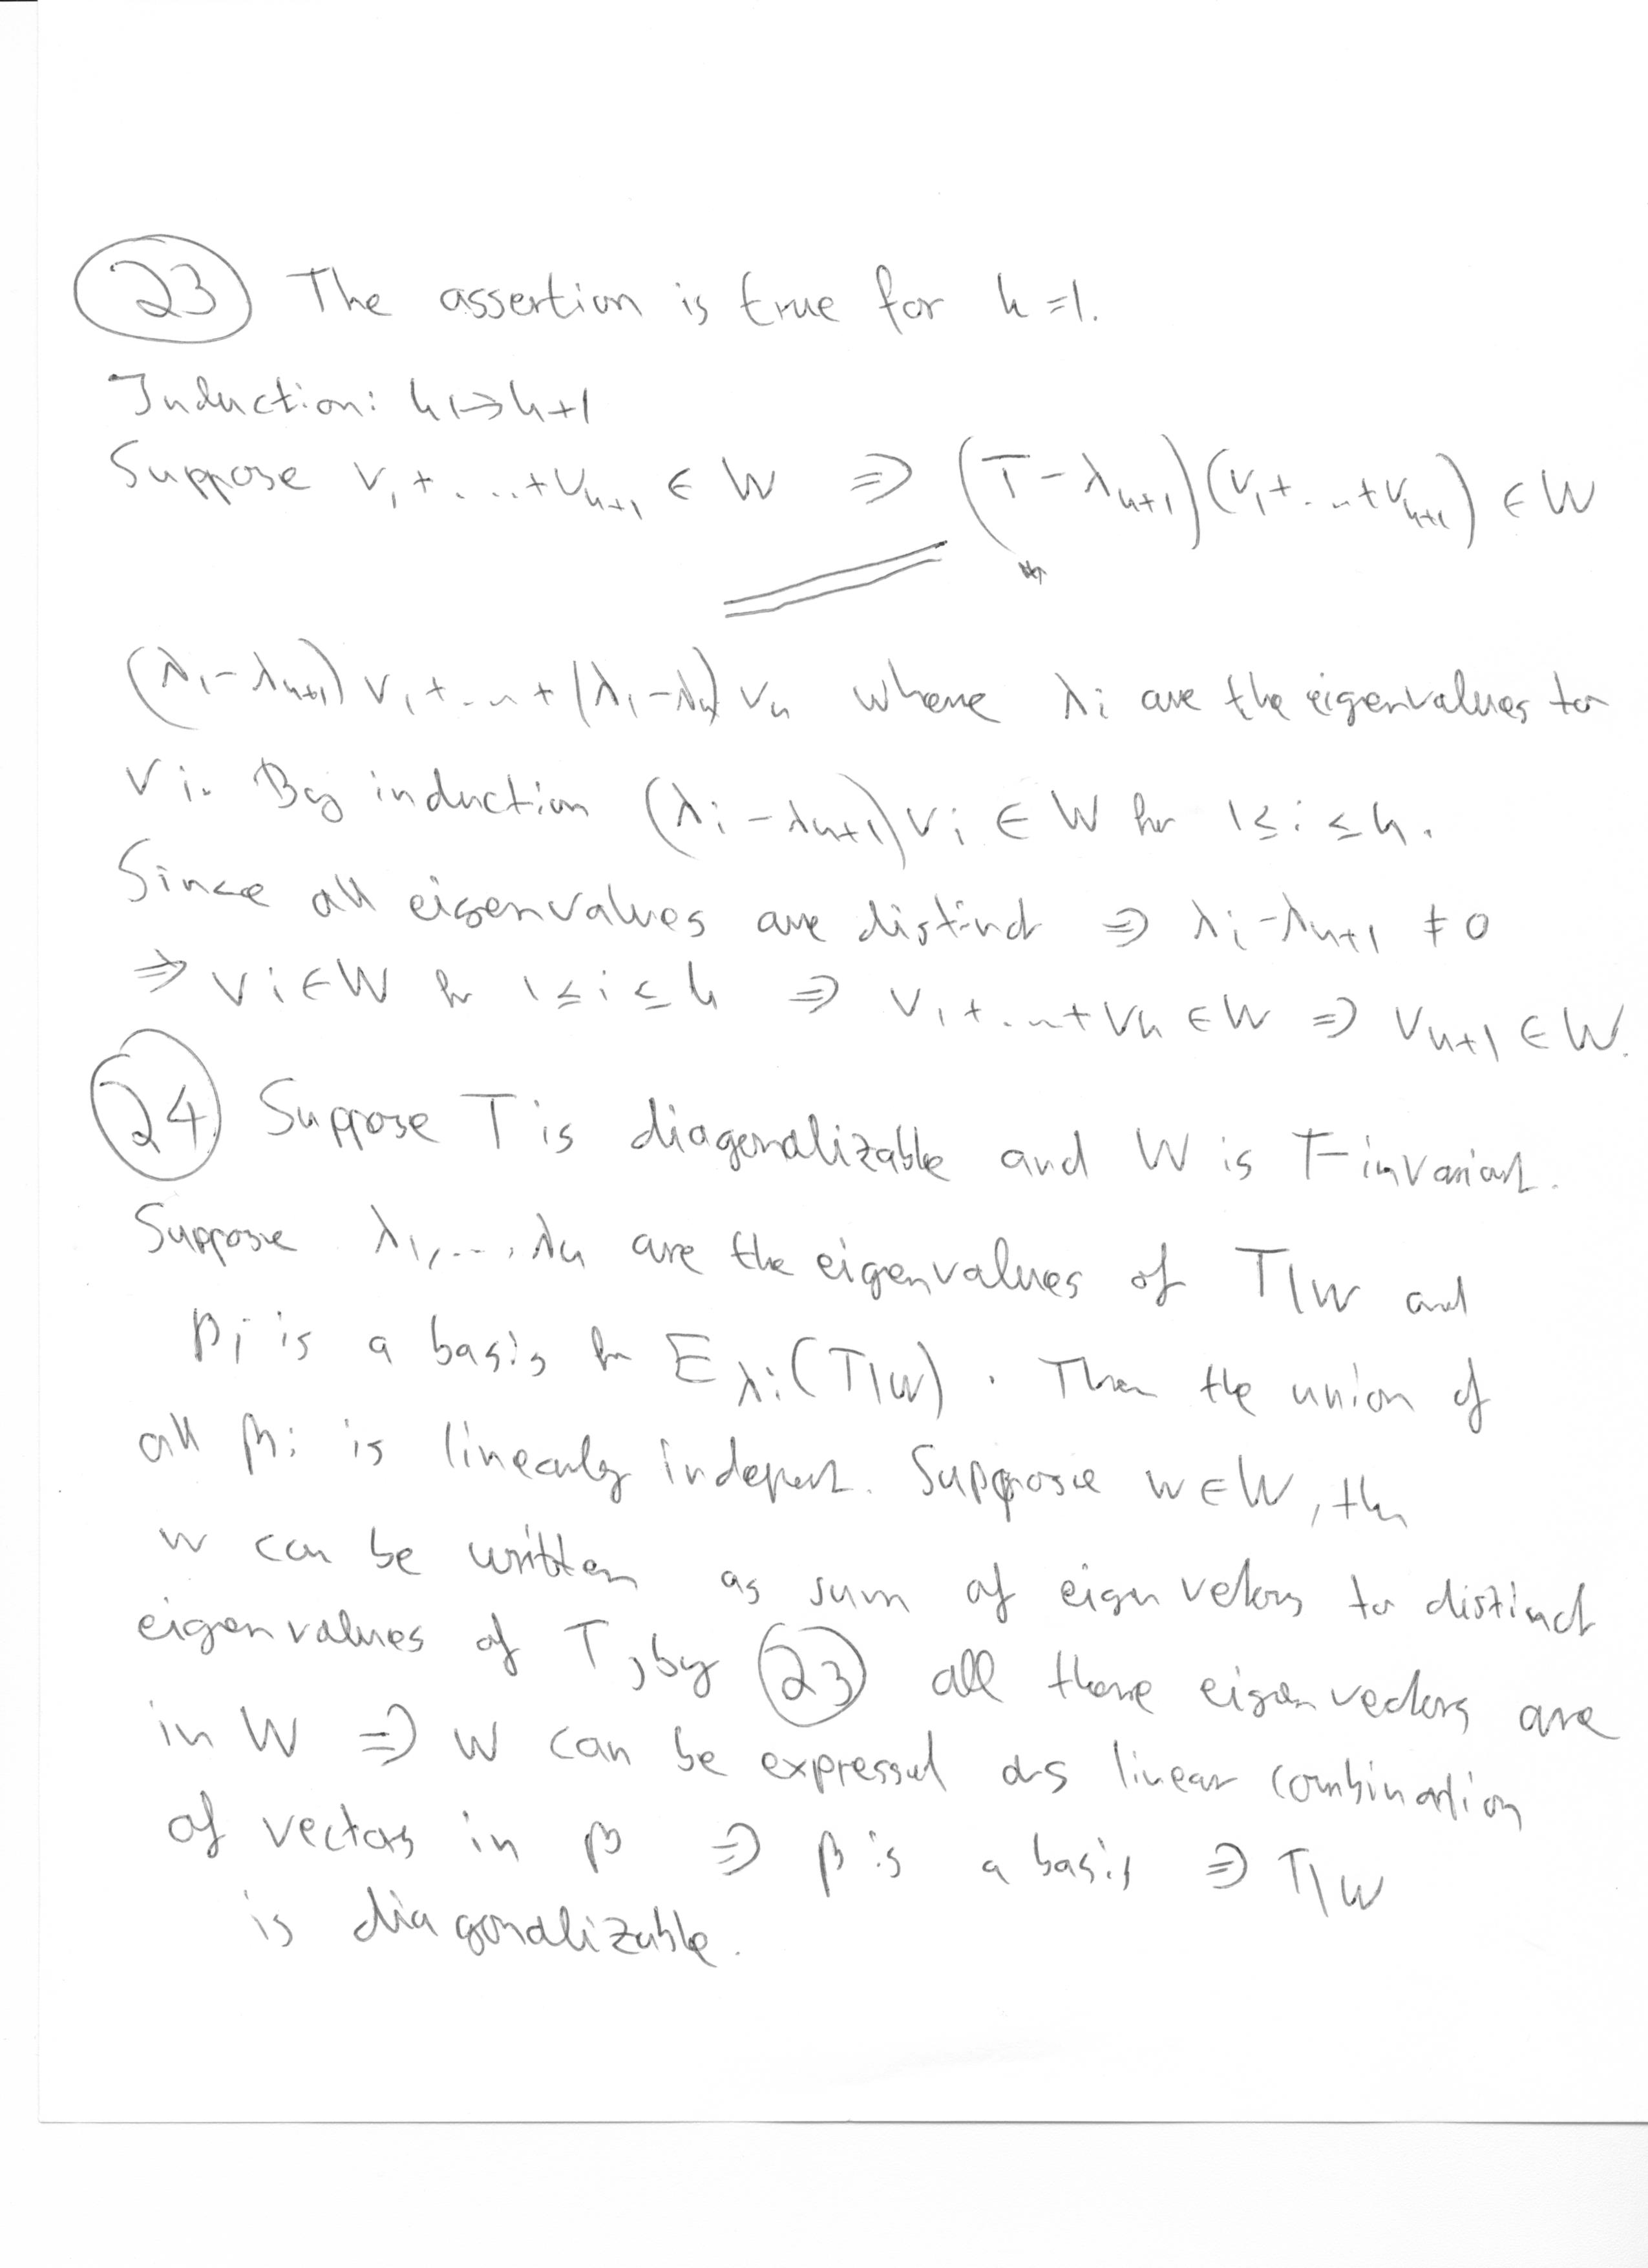 23 The assertion is true for k=1.
Induction: k↦k+1
Suppose v₁+....+v_{k+1} ∈ W ⇒ (T-λ_{k+1})(v₁+...+v_{k+1}) ∈ W
=
(λ₁-λ_{k+1}) v₁+...+(λ₁-λ_k) v_k where λi are the eigenvalues to
vi. By induction (λi-λ_{k+1})vi ∈ W for 1≤i≤k.
Since all eigenvalues are distinct ⇒ λi-λ_{k+1} ≠ 0
⇒ vi∈W for 1≤i≤k ⇒ v₁+...+v_k ∈W ⇒ v_{k+1} ∈W.
24 Suppose T is diagonalizable and W is T-invariant.
Suppose λ₁,...,λ_k are the eigenvalues of T|W and
βi is a basis for E_{λi}(T|W). Then the union of
all βi is linearly indepent. Suppose w∈W, then
w can be written as sum of eigenvectors to distinct
eigenvalues of T, by 23 all these eigenvectors are
in W ⇒ w can be expressed as linear combination
of vectors in β ⇒ β is a basis ⇒ T|W
is diagonalizable.